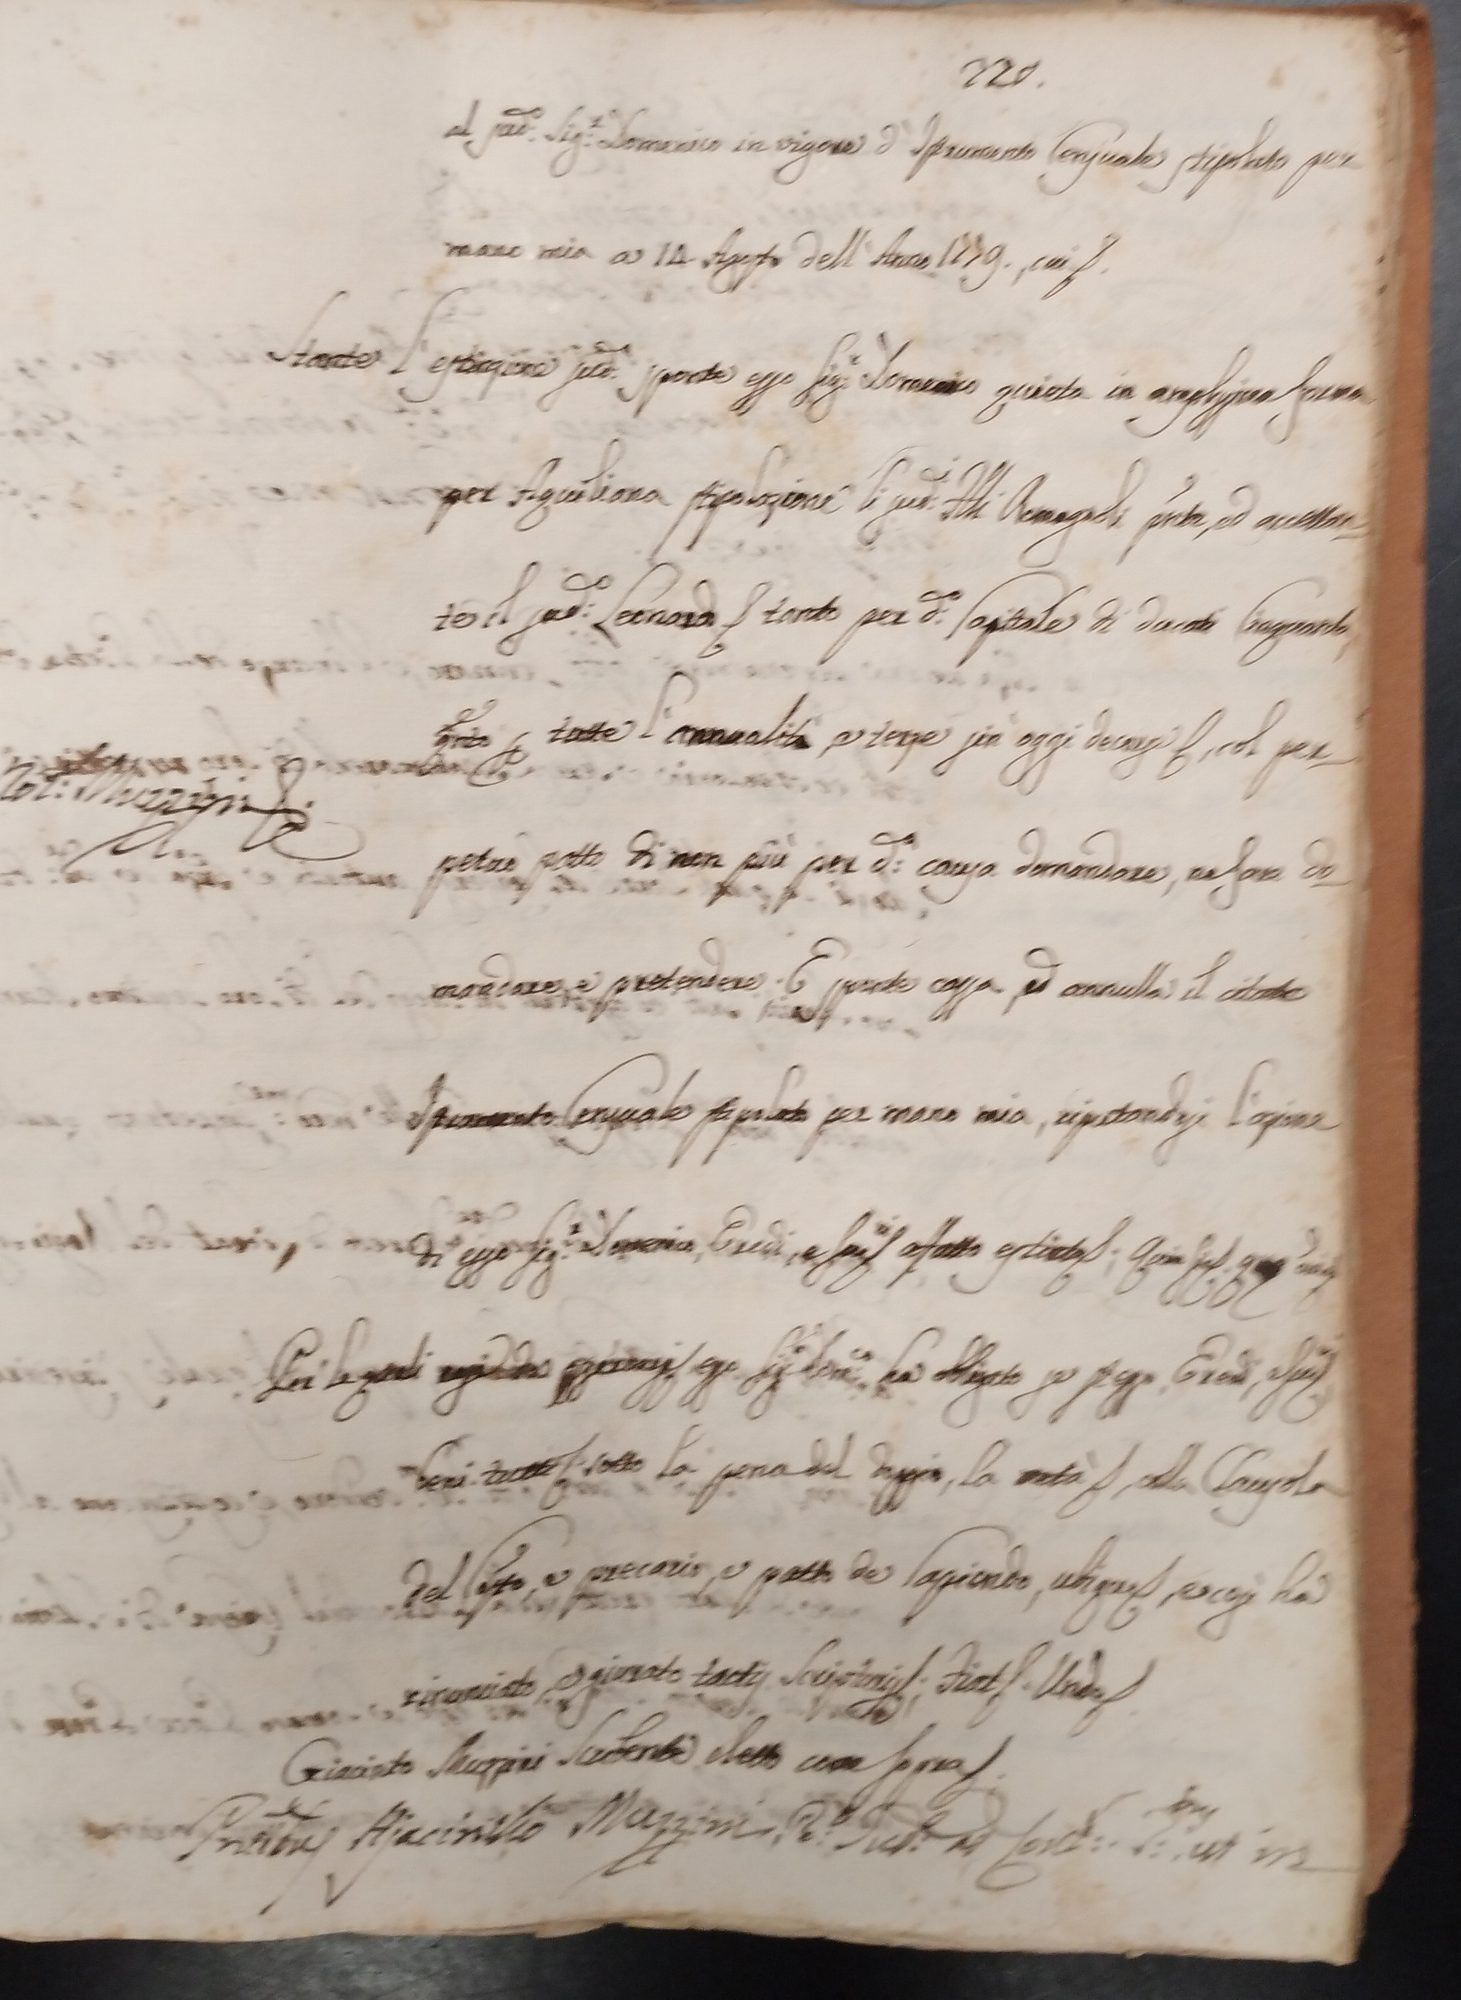 220.
al pred.º Sig.r Domenico in vigore d'Istrumento Censuale stipolato per
mano mia a 14 Agosto dell'Anno 1779., cui
Stante l'estinzione pred.ª sponte esso Sig.r Domenico quieta in amplissima forma
per Aquiliana stipolazione li pred.i ed accettan-
te il pred.º Leonardo tanto per d.º Capitale di ducati Cinquanta,
q.nto tutte l'annualità, e terze sin'oggi decurse, col per-
Not: Muzzini
petuo patto di non più per d.ª causa domandare, ne far do-
mandare, e pretendere. E sponte cassa, ed annulla il citato
Istrumento Censuale stipolato per mano mia, riputandosi l'azione
di esso Sig.r Domenico, Eredi, e affatto estinta;
Per le quali cose esso Sig.r Dom.co ha obligato se stesso, Eredi, e
beni tutti sotto la pena del doppio, la metà, colla Clausola
del Cost.to, e precario, e patto de Capiendo, e così ha
rinunciato, e giurato tactis Scripturis. Unde
Giacinto Muzzini Scribente eletto come sopra.
Hjacintho Muzzini, ut in